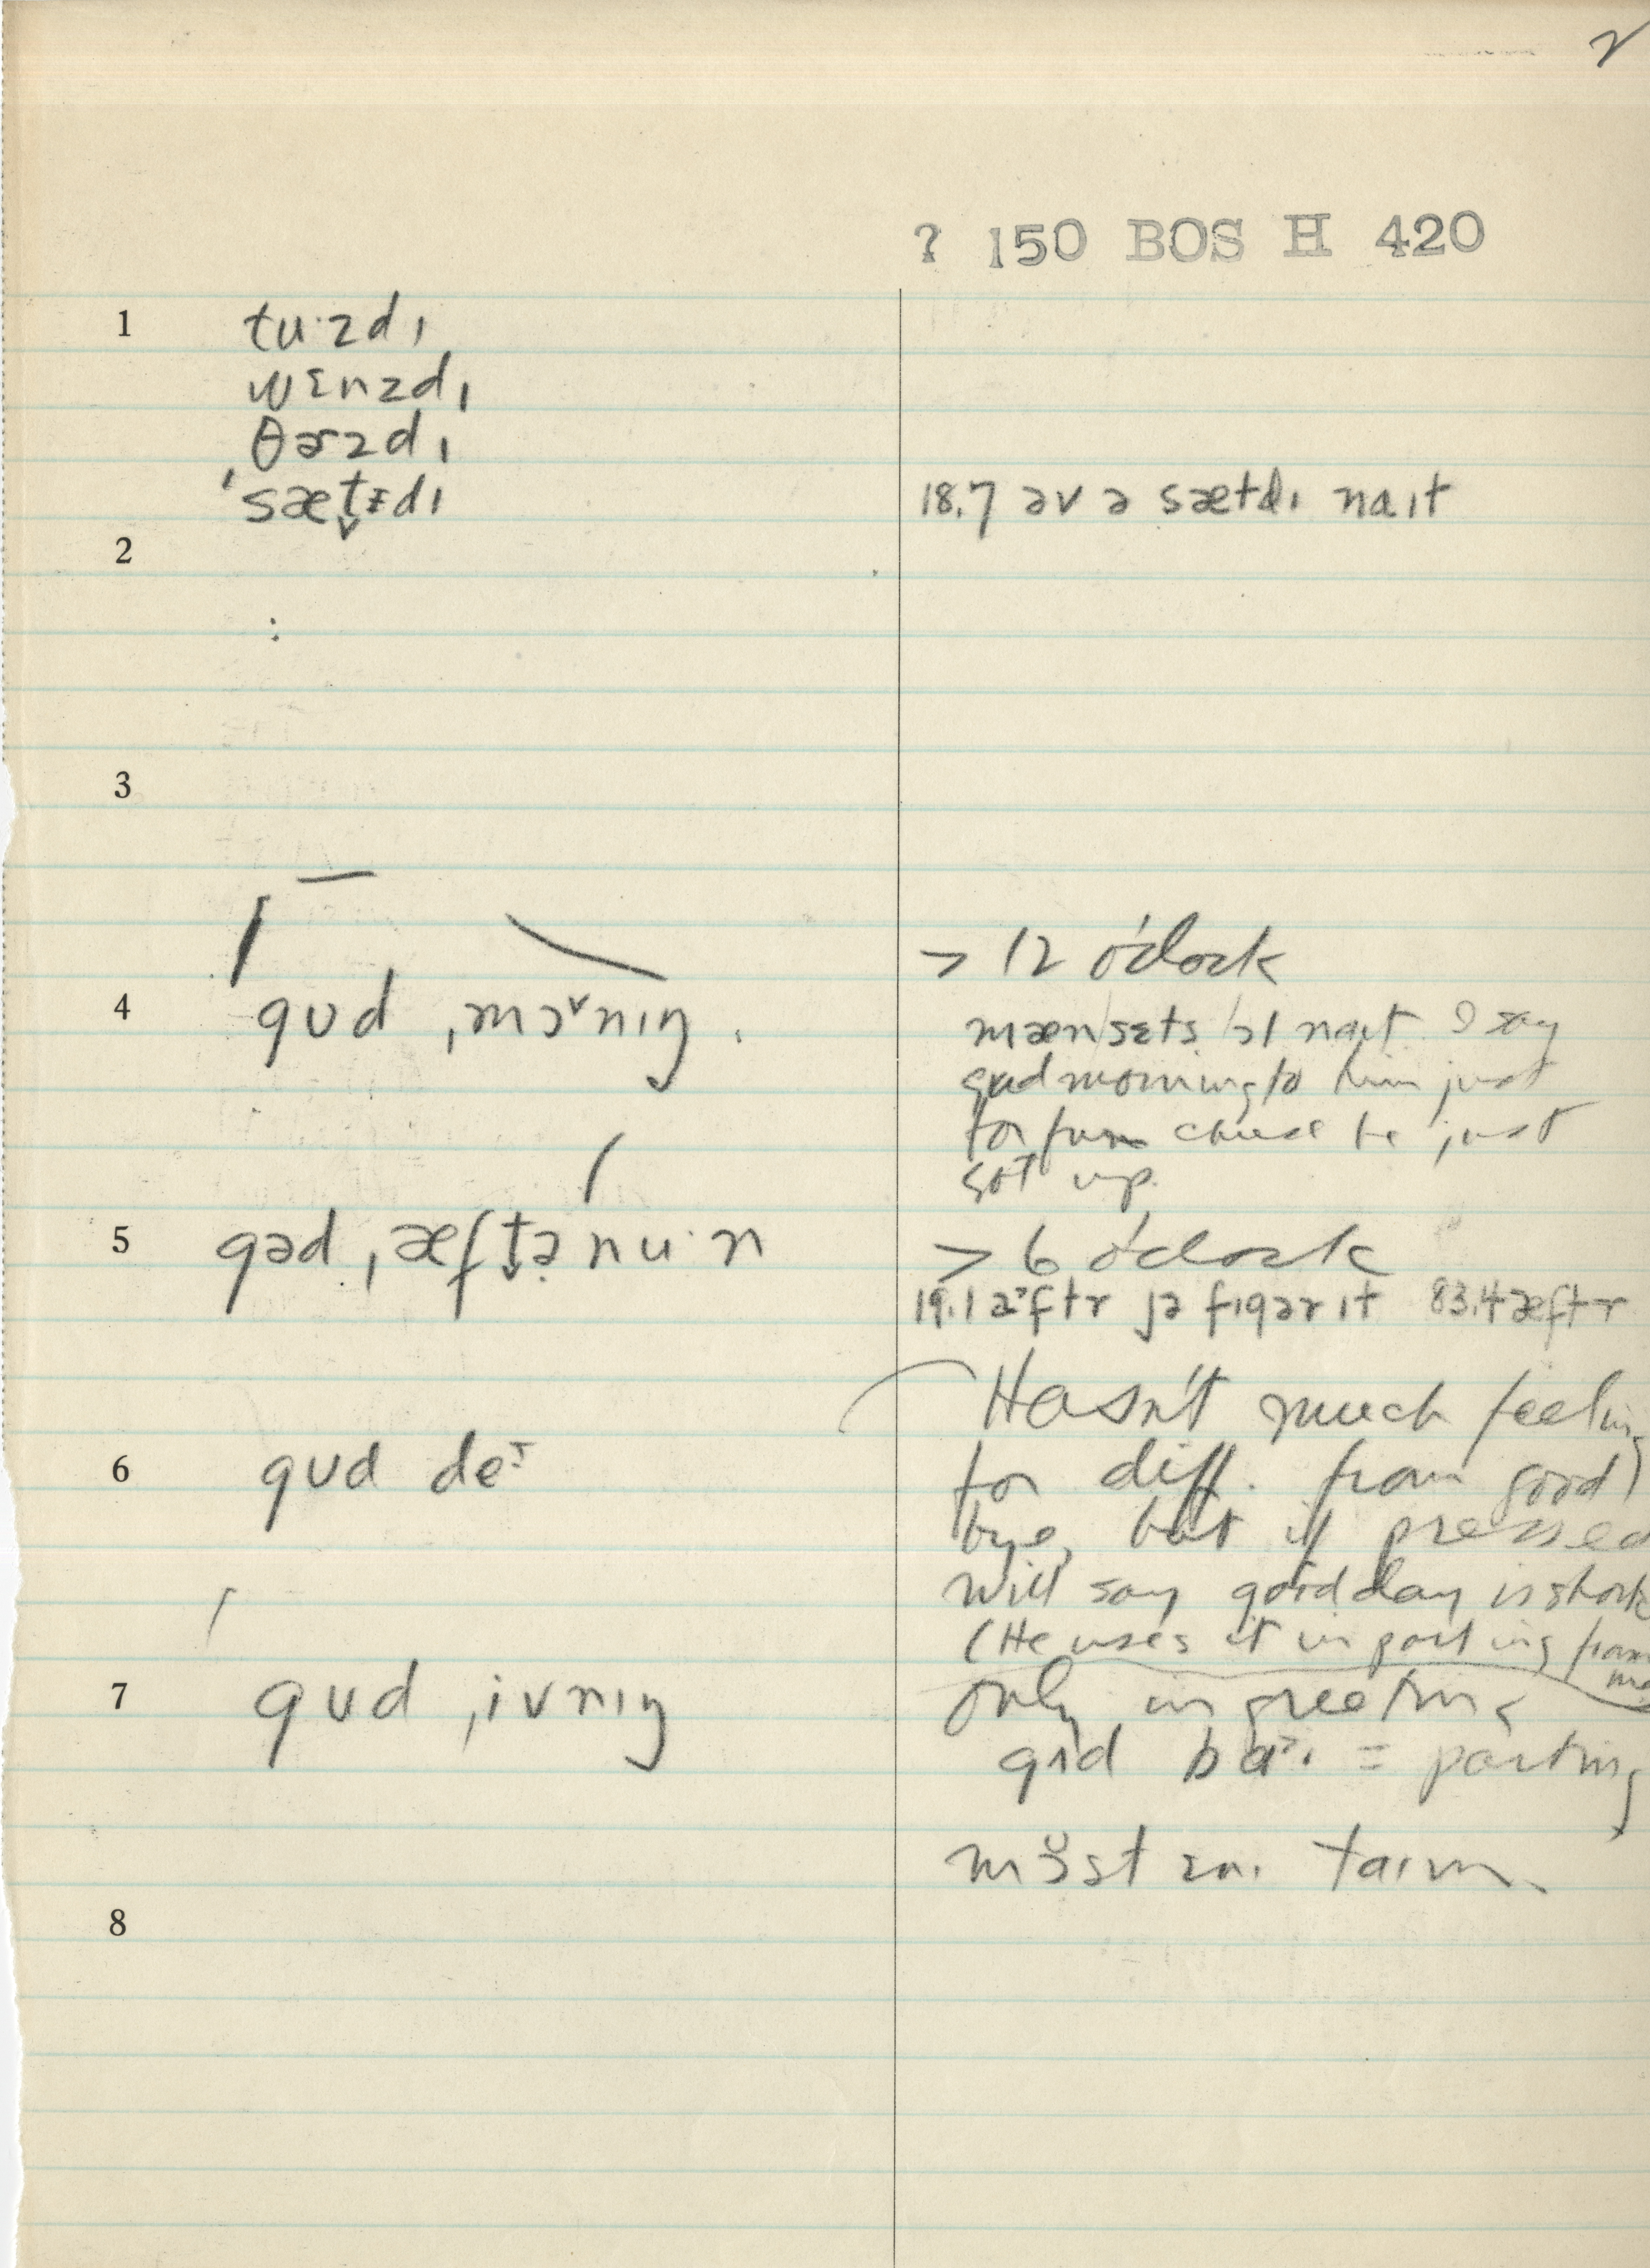 2
? 150 BOS H 420
1 tu·zdɪ
wɛnzdɪ
θɚzdɪ
ˈsæt̬ɨdɪ
18.7 əv ə sætdɪ naɪt
2
:
3
> 12 o'clock
4 gʊd ˌmɔ˅nɪŋ.
mæn sɛts naɪt I say
gud morning to him just
for fun cause he just
got up.
5 gəd ˌæft̬ənu·n
> 6 o'clock
19.1 æftr jə fɪgər ɪt 83.4 æftr
Hasn't much feeling
6 gʊd deɪ
for diff. from good
bye, but if pressed
will say good day is short
(He uses it in parting from me
7 gʊd ˌivnɪŋ
only in greeting
gɪd baɪ = parting
mɔ̆st ɛnɪ taɪm
8